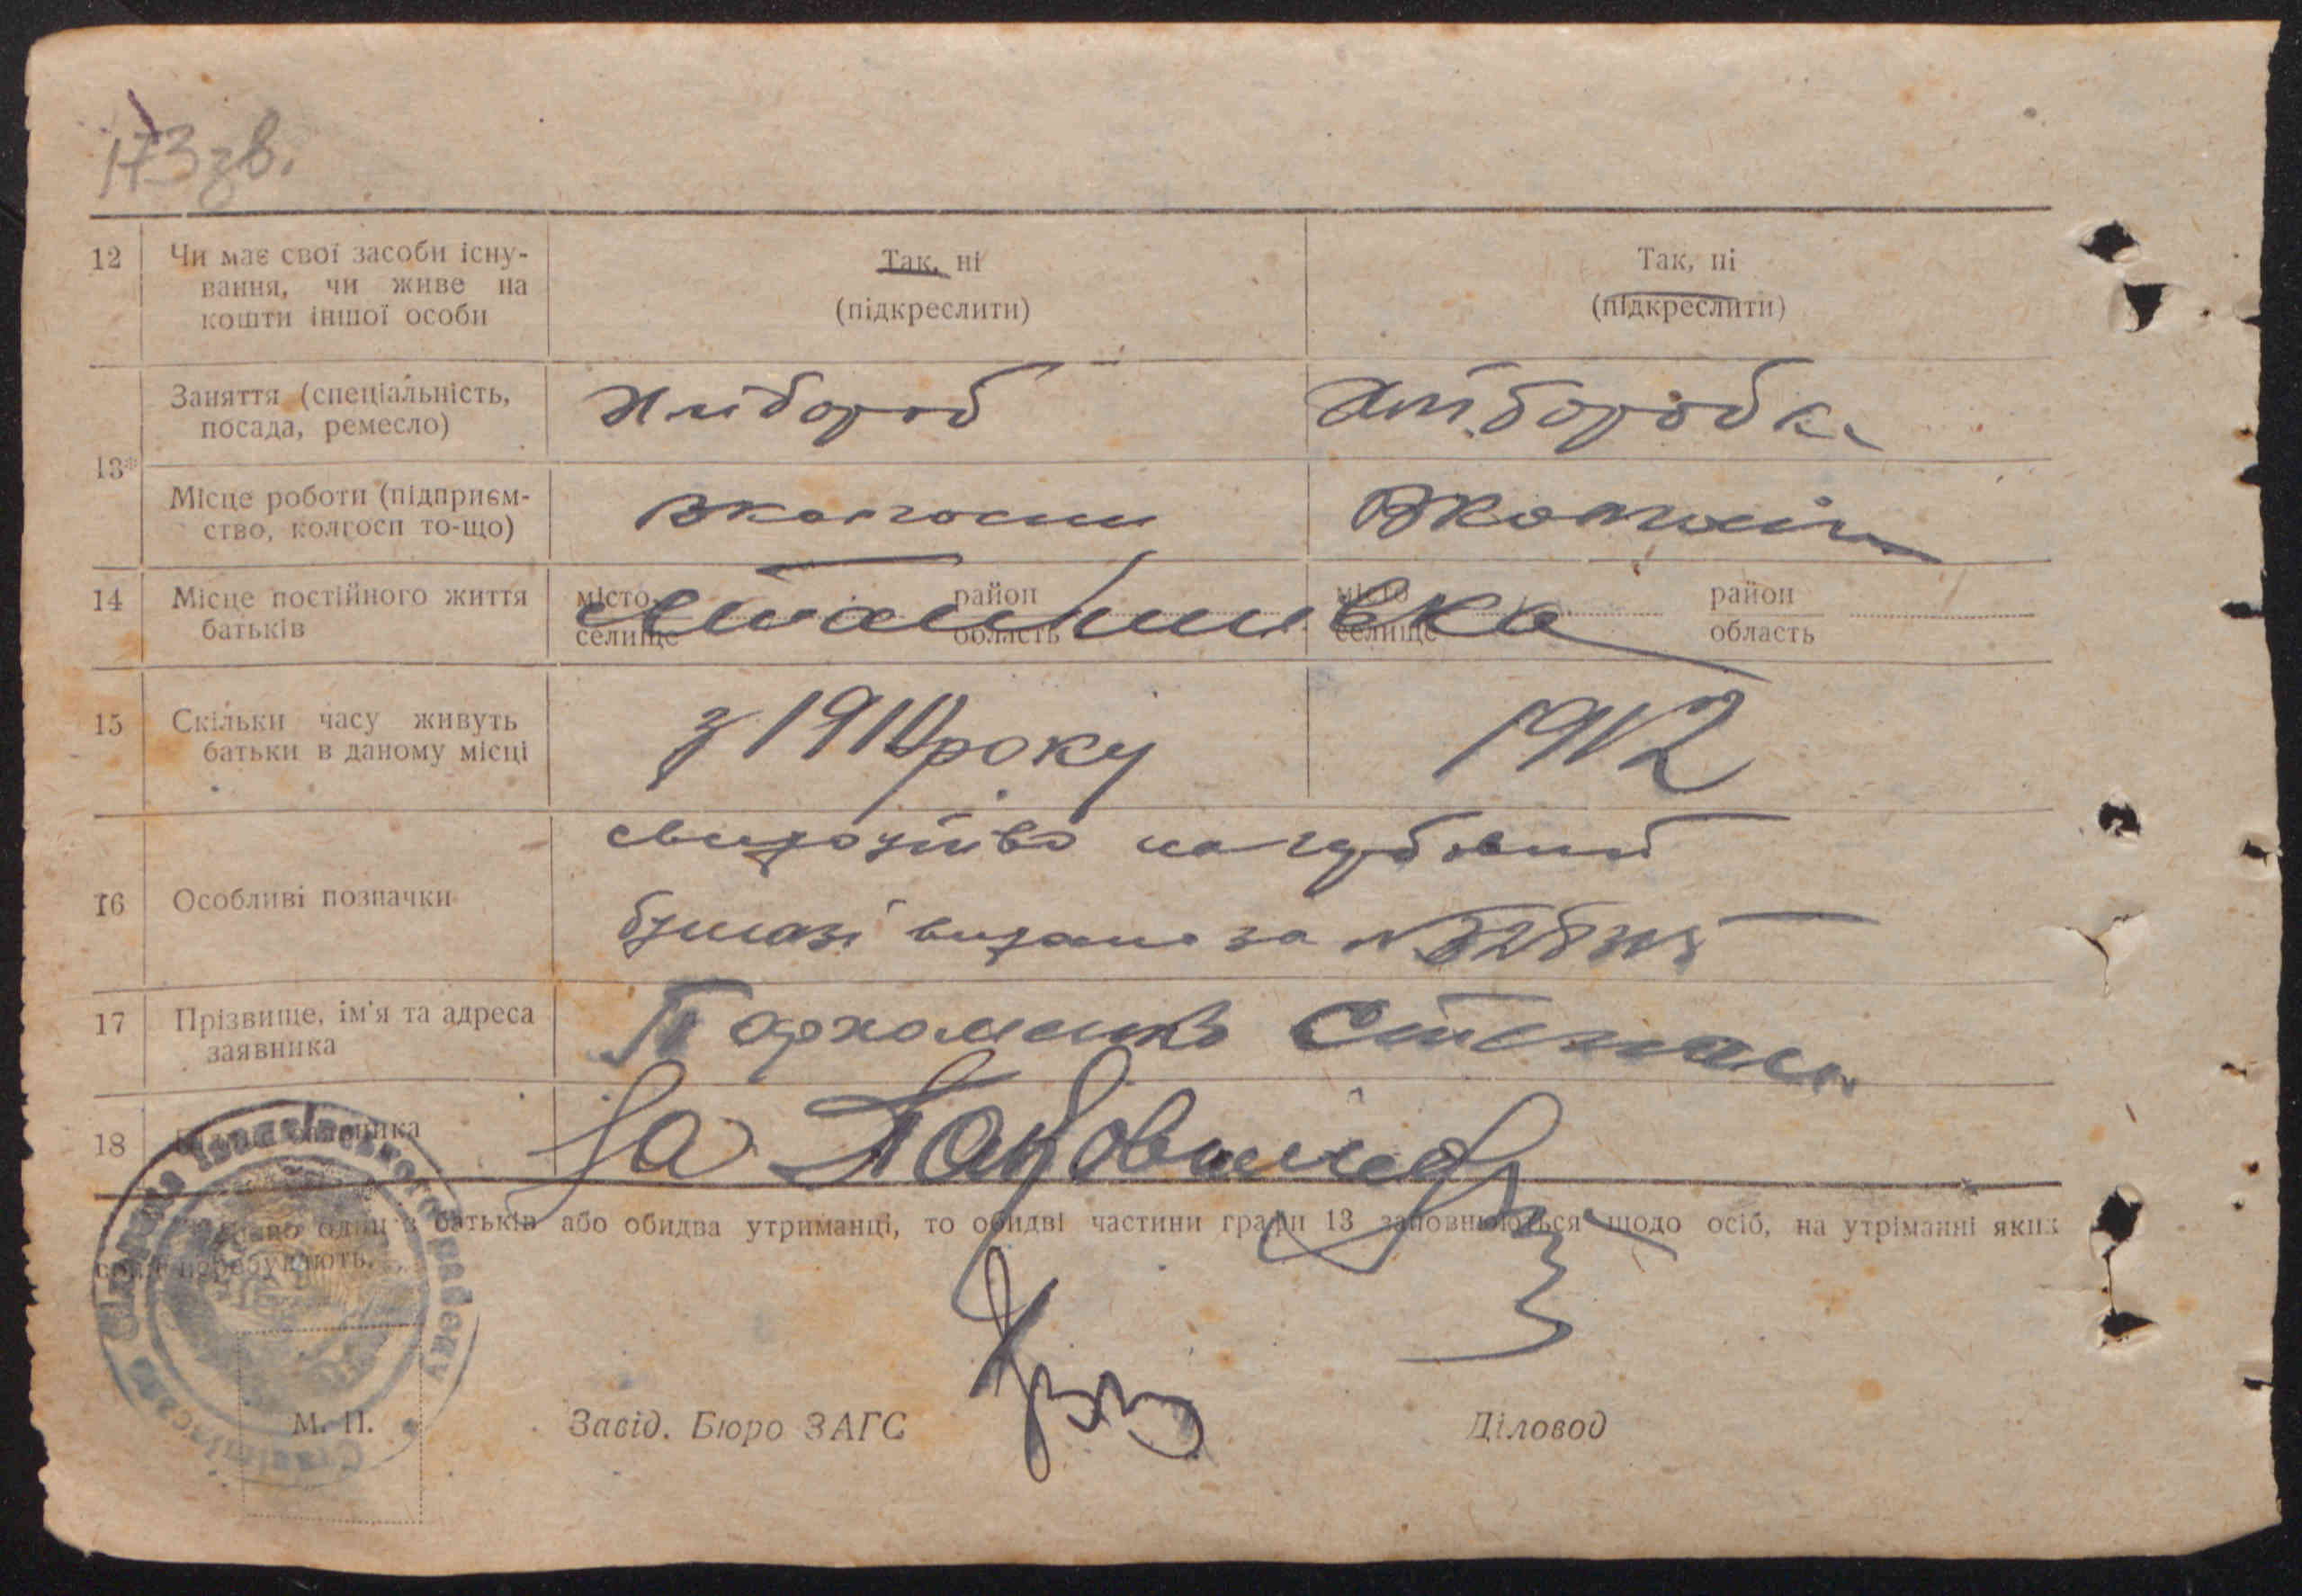 173 зв.
12 Чи має свої засоби існу-
вання, чи живе на
кошти іншої особи
Так, ні
(підкреслити)
Так, ні
(підкреслити)
13*
Заняття (спеціальність,
посада, ремесло)
Хлібороб
Хліборобка
Місце роботи (підприєм-
ство, колгосп то-що)
В колгоспи
В колгоспі
14 Місце постійного життя
батьків
місто
селище
район
область
місто
селище
район
область
15 Скільки часу живуть
батьки в даному місці
з 1910 року
1912
16 Особливі позначки
свидоцтво на
бумазі видано за №
17 Прізвище, ім'я та адреса
заявника
Пархоменко Степан
18
За
батьків або обидва утриманці, то обидві частини графи 13 заповнюються щодо осіб, на утріманні яких
перебувають.
М. П.
Завід. Бюро ЗАГС
Діловод